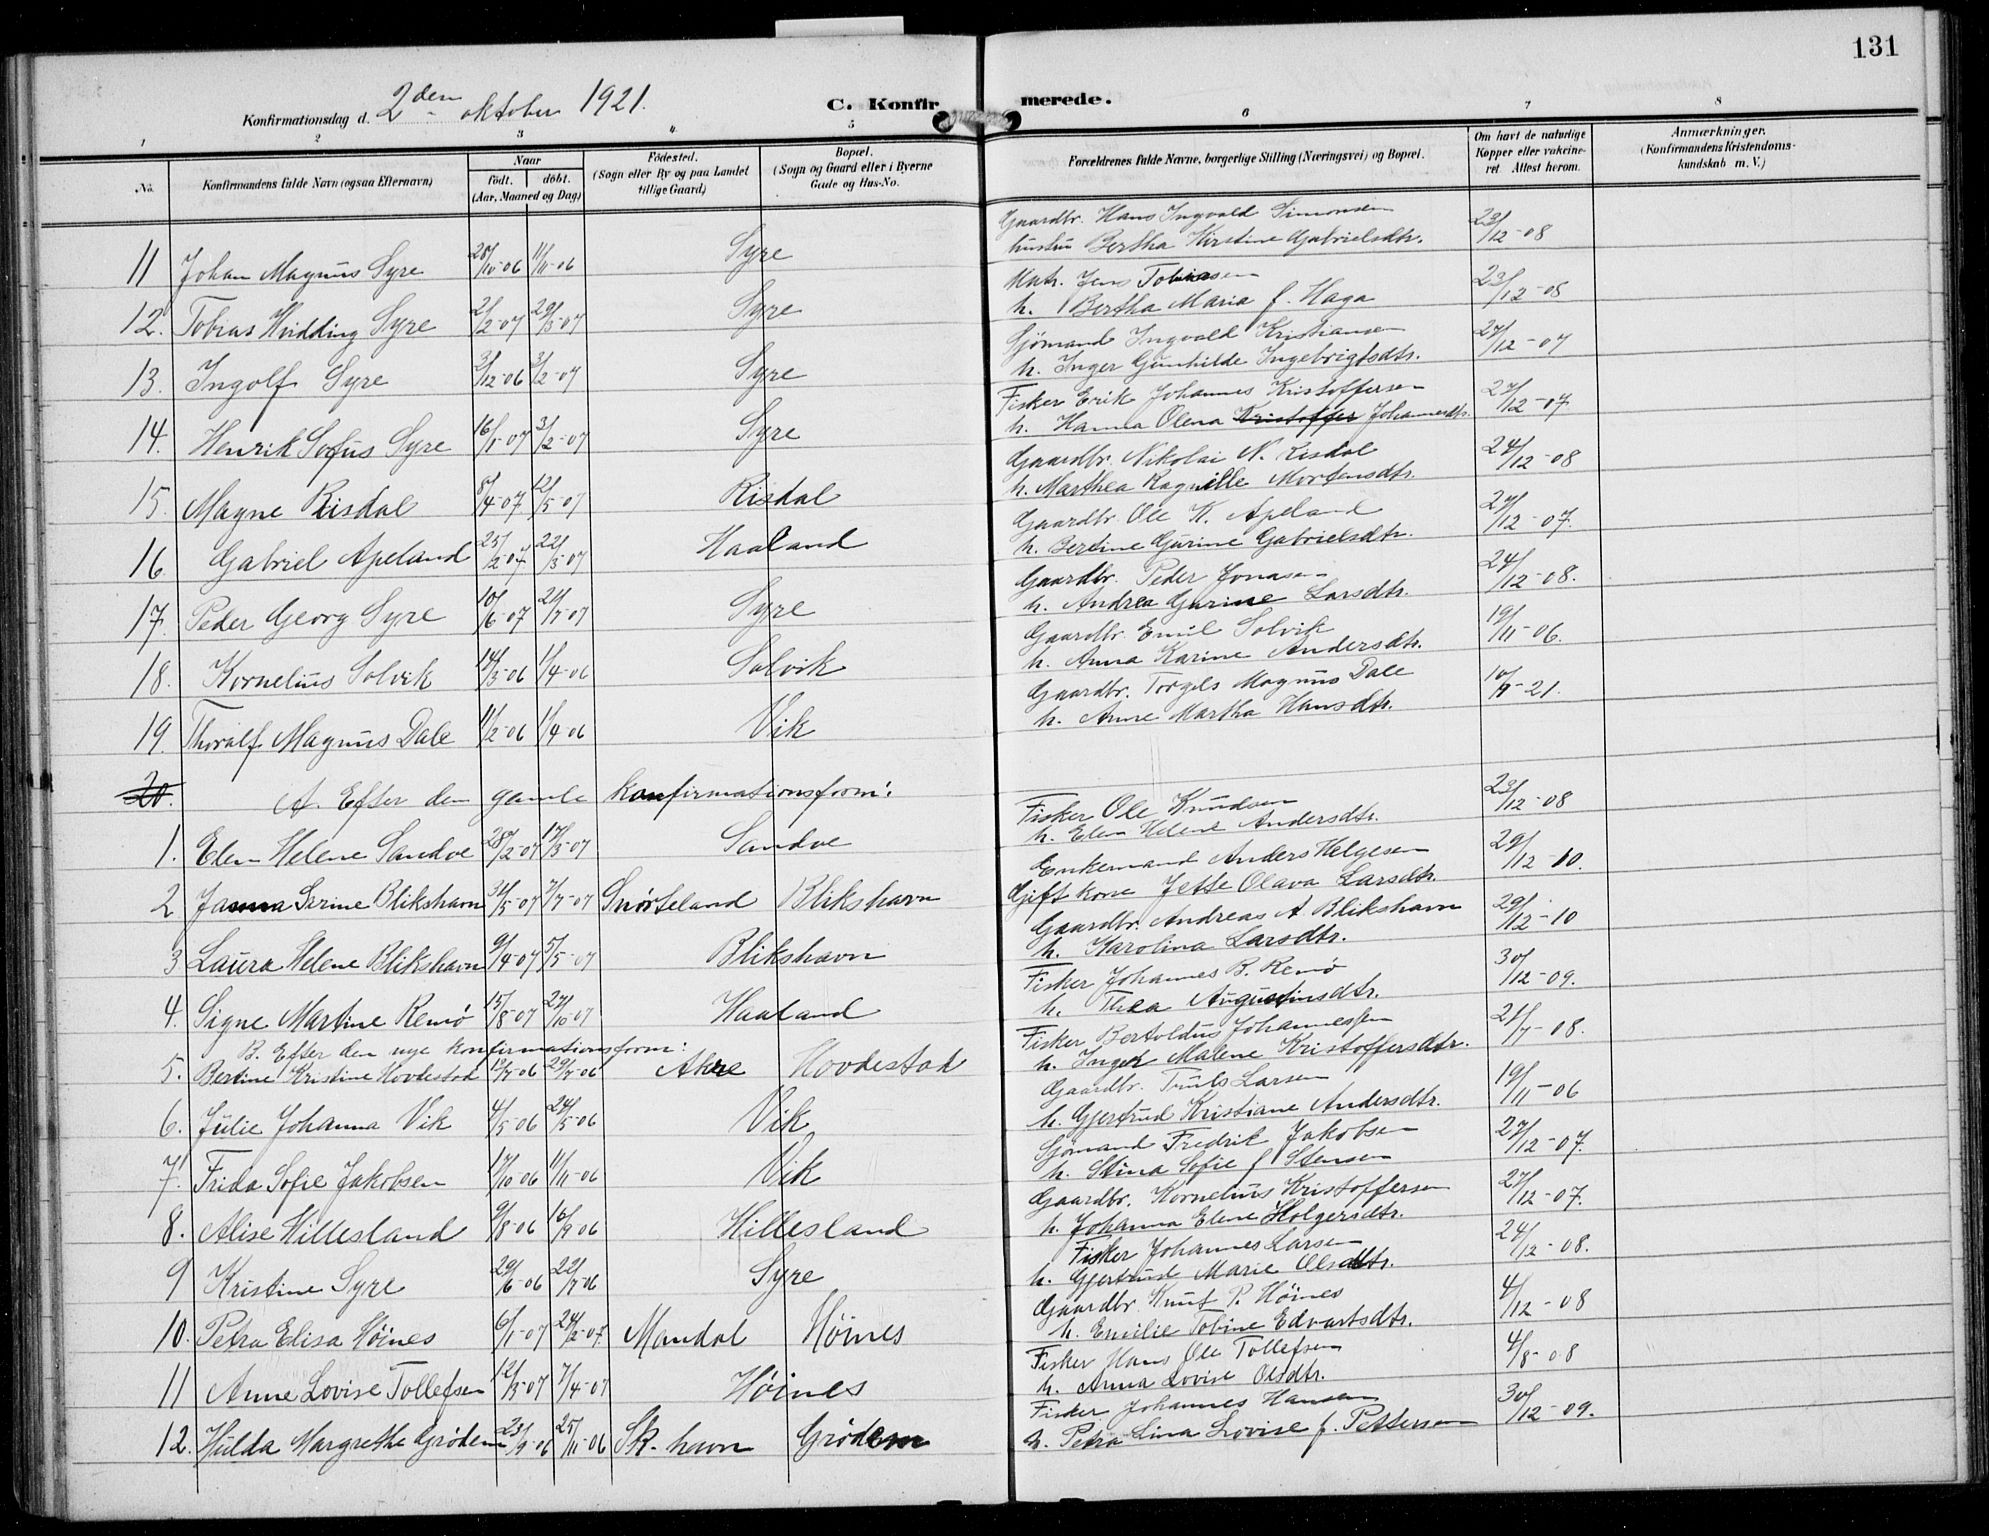 131
Konfirmationsdag d. 2den oktober 1921.
C. Konfirmerede.
1 2 3 4 5 6 7 8
No. Konfirmandens fulde Navn (ogsaa Efternavn) Naar født. døbt. (Aar, Maaned og Dag) Fødested. (Sogn eller By og paa Landet tillige Gaard) Bopæl. (Sogn og Gaard eller i Byerne Gade og Hus-No. Forældrenes fulde Navne, borgerlige Stilling (Næringsvei) og Bopæl. Om havt de naturlige Kopper eller vakcineret. Attest herom. Anmærkninger. (Konfirmandens Kristendomskundskab m. V.)
11 Johan Magnus Syre 28/10-06 11/11-06 Syre Gaardbr. Hans Ingvald Simonsen 23/12-08
hustru Bertha Kirstine Gabrielsdtr.
12. Tobias Hvidding Syre 2/2-07 29/3-07 Syre Matr. Jens Tobiasen 23/12-08
h. Bertha Maria f. Haga
13. Ingolf Syre 3/12-06 3/2-07 Syre Sjømand Ingvald Kristiansen 27/12-07
h. Inger Gunhilde Ingebrigtsdtr.
14. Henrik Sofus Syre 16/1-07 3/2-07 Syre Fisker Erik Johannes Kristoffersen 27/12-07
h. Hanna Olena Kristoffer Johannesdtr.
15. Magne Risdal 8/4-07 12/5-07 Risdal Gaardbr. Nikolai N. Risdal 24/12-08
h. Marthea Ragnille Mortensdtr.
16 Gabriel Apeland 25/2-07 22/3-07 Haaland Gaardbr. Ole K. Apeland 27/12-07.
h. Bertine Gurine Gabrielsdtr.
17. Peder Georg Syre 10/6-07 21/7-07 Syre Gaardbr. Peder Jonasen 24/12-08.
h. Andrea Gurine Larsdtr.
18. Kornelius Solvik 14/3-06 1/4-06 Solvik Gaardbr. Emil Solvik 19/11-06.
h. Anna Karine Andersdtr.
19. Thoralf Magnus Dale 11/2-06 1/4-06 Vik Gaardbr. Torgels Magnus Dale 10/9-21.
h. Anne Martha Hansdtr.
20. A. Efter den gamle konfirmationsform:
1. Elen Helene Sandve 28/2-07 17/3-07 Sandve Fisker Ole Knudsen 23/12-08
h. Elen Helene Andersdtr.
2 Janna Serine Blikshavn 31/5-07 7/7-07 Snørteland Blikshavn Enkemand Anders Helgesen 29/12-10.
Gift kone Jette Olava Larsdtr.
3 Laura Helene Blikshavn 9/4-07 5/5-07 Blikshavn Gaardbr. Andreas A. Blikshavn 29/12-10
h. Karolina Larsdtr.
4. Signe Martine Remø 15/8-07 27/10-07 Haaland Fisker Johannes B. Remø 30/12-09.
h. Thea Augustinusdtr.
B. Efter den nye konfirmationsform:
5. Bertine Kristine Hovdestad 12/7-06 29/7-06 Akre Hovdestad Fisker Bertoldus Johannessen 21/7-08.
h. Inger Malene Kristoffersdtr.
6. Julie Johanna Vik 4/5-06 24/5-06 Vik Gaardbr. Truls Larsen 19/11-06
h. Gjertrud Kristiane Andersdtr.
7. Frida Sofie Jakobsen 17/10-06 11/11-06 Vik Sjømand Fredrik Jakobsen 27/12-07.
h. Stina Sofie f Stensen
8. Alise Hillesland 9/8-06 16/9-06 Hillesland Gaardbr. Kornelius Kristoffersen 27/12-07.
h. Johanna Elene Holgersdtr.
9 Kristine Syre 29/6-06 22/7-06 Syre Fisker Johannes Larsen 24/12-08.
h. Gjertrud Marie Olsdtr.
10. Petra Elisa Høines 6/1-07 24/2-07 Mandal Høines Gaardbr. Knut P. Høines 4/12-08
h. Emilie Tobine Edvartsdtr.
11 Anne Lovise Tollefsen 12/3-07 7/4-07 Høines Fisker Hans Ole Tollefsen 4/8-08
h. Anna Lovise Olsdtr.
12. Hulda Margrethe Grødem 23/9-06 25/11-06 Sk. havn Grødem Fisker Johannes Hansen 30/12-09.
h. Petra Lina Lovise f. Pettersen